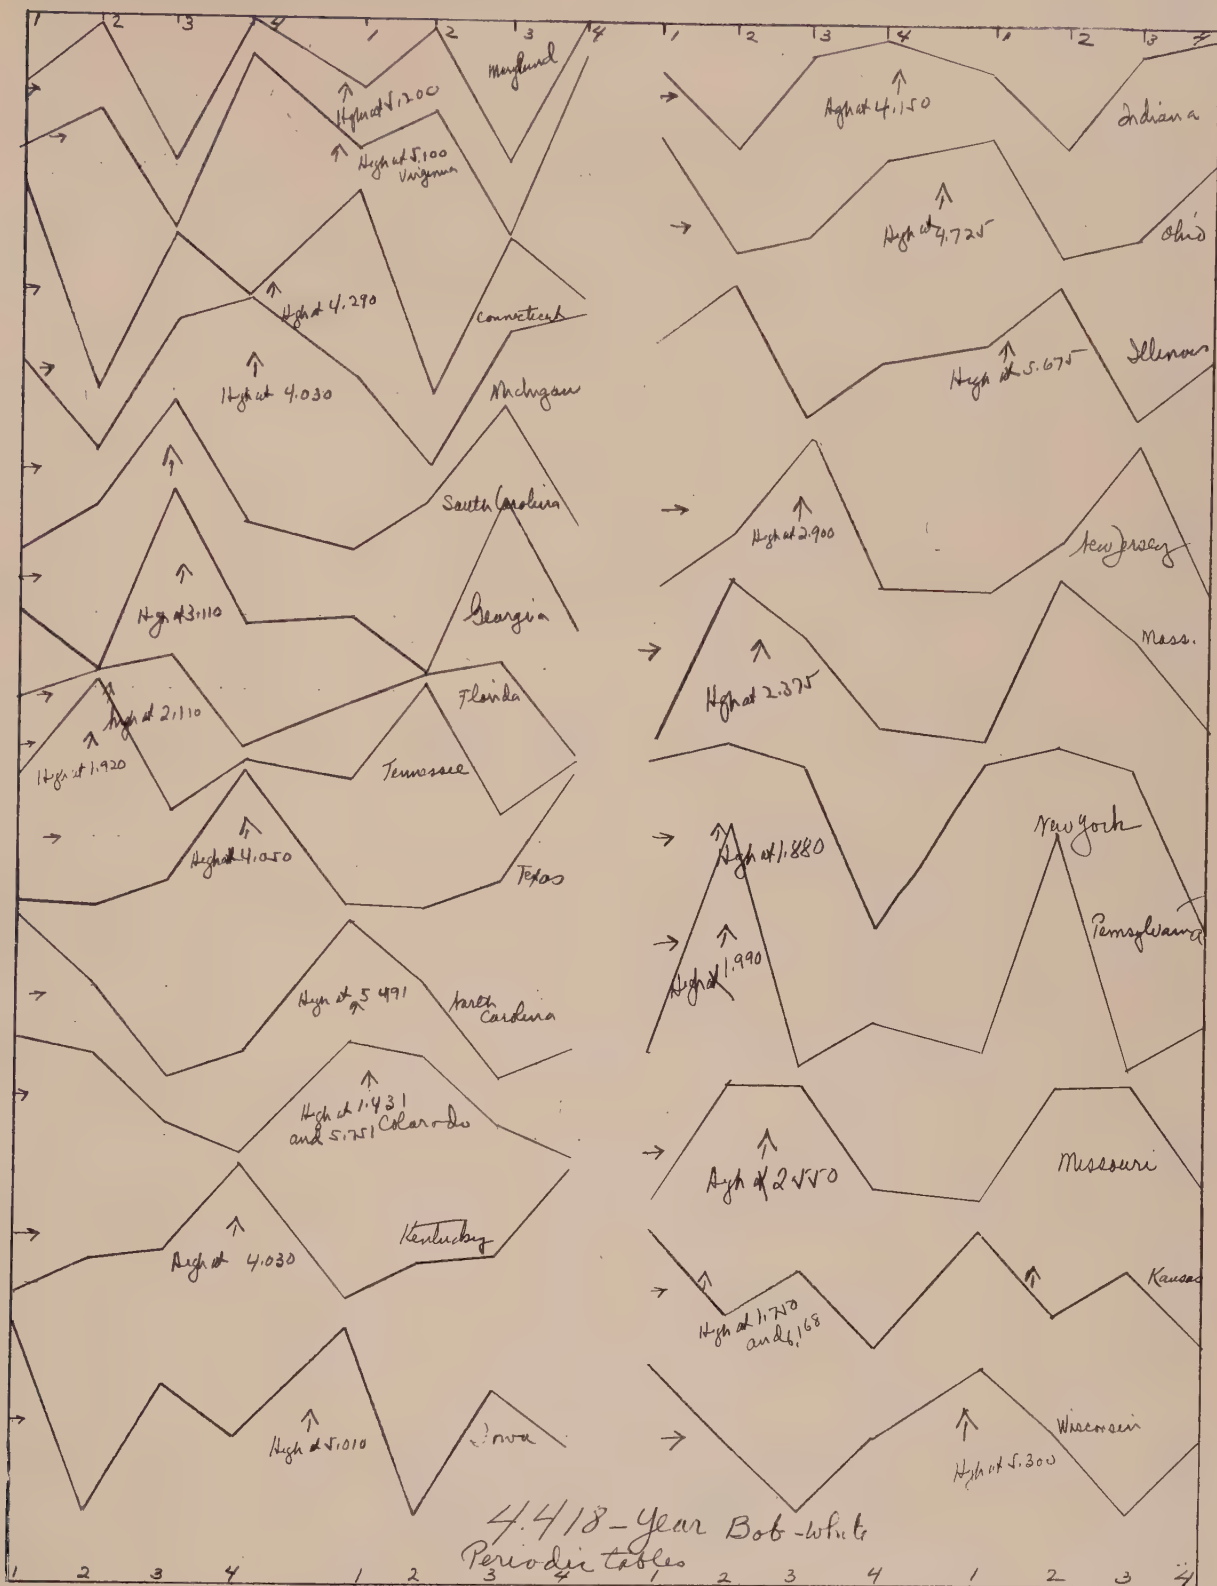 1 2 3 4 1 2 3 4 1 2 3 4 1 2 3 4
Maryland
High at 5.200
High at 5.100
Virginia
High at 4.290
Connecticut
High at 4.030
Michigan
South Carolina
High at 3.110
Georgia
High at 2.110
Florida
High at 1.920
Tennessee
High at 4.050
Texas
High at 5 491
North
Carolina
High at 1.431
and 5.751 Colorado
High at 4.030
Kentucky
High at 5.010
Iowa
High at 4.150
Indiana
High at 4.725
Ohio
High at 5.675
Illinois
High at 2.900
New Jersey
High at 2.375
Mass.
High at 1.880
New York
High at 1.990
Pennsylvania
High at 2550
Missouri
High at 1.750
and 6.168
Kansas
High at 5.300
Wisconsin
4.418-Year Bob-white
Periodic tables
1 2 3 4 1 2 3 4 1 2 3 4 1 2 3 4